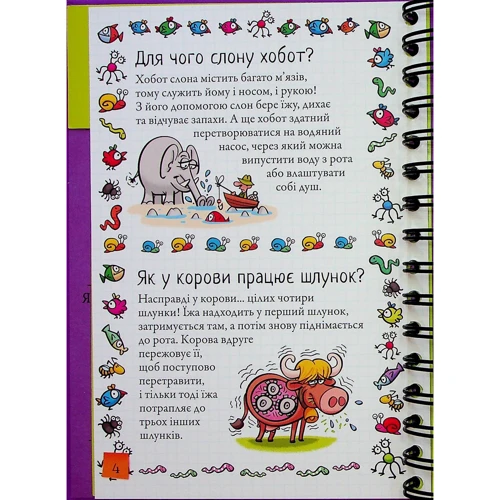 Для чого слону хобот?
Хобот слона містить багато м'язів,
тому служить йому і носом, і рукою!
З його допомогою слон бере їжу, дихає
та відчуває запахи. А ще хобот здатний
перетворюватися на водяний
насос, через який можна
випустити воду з рота
або влаштувати
собі душ.
Як у корови працює шлунок?
Насправді у корови... цілих чотири
шлунки! Їжа надходить у перший шлунок,
затримується там, а потім знову піднімається
до рота. Корова вдруге
пережовує її,
щоб поступово
перетравити,
і тільки тоді їжа
потрапляє до
трьох інших
шлунків.
4